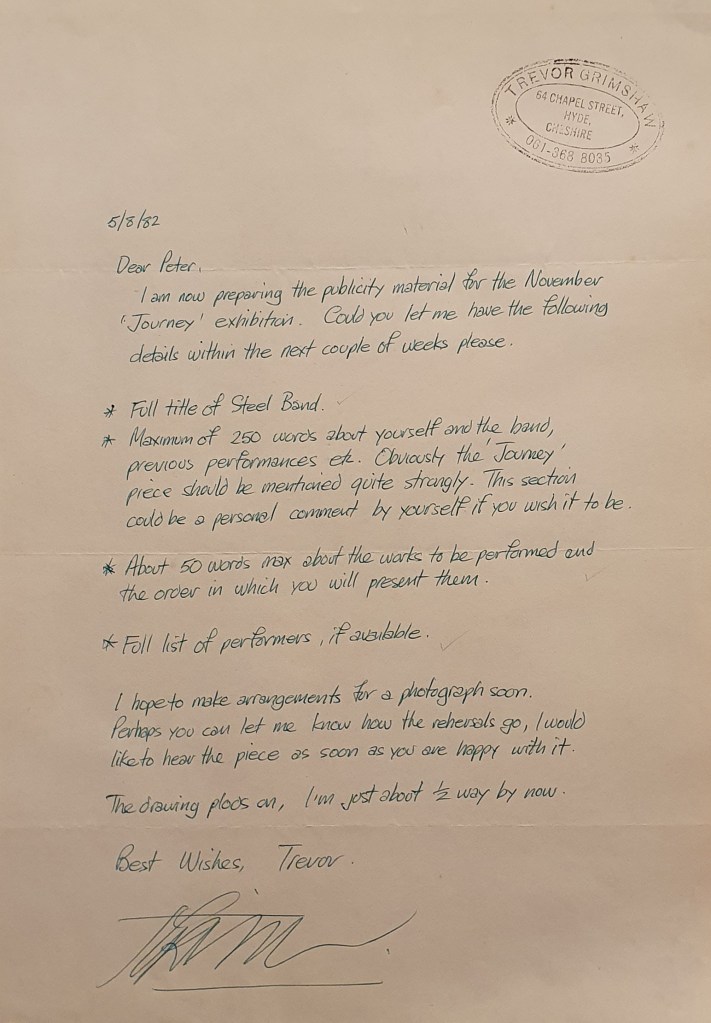 TREVOR GRIMSHAW
64 CHAPEL STREET,
HYDE,
CHESHIRE
061-368 8035
5/8/82
Dear Peter,
I am now preparing the publicity material for the November
'Journey' exhibition. Could you let me have the following
details within the next couple of weeks please.
* Full title of Steel Band.
* Maximum of 250 words about yourself and the band,
previous performances etc. Obviously the 'Journey'
piece should be mentioned quite strongly. This section
could be a personal comment by yourself if you wish it to be.
* About 50 words max about the works to be performed and
the order in which you will present them.
* Full list of performers, if available.
I hope to make arrangements for a photograph soon.
Perhaps you can let me know how the rehersals go, I would
like to hear the piece as soon as you are happy with it.
The drawing plods on, I'm just about ½ way by now.
Best Wishes, Trevor.